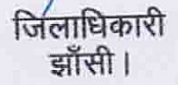 जिलाधिकारी
झाँसी।